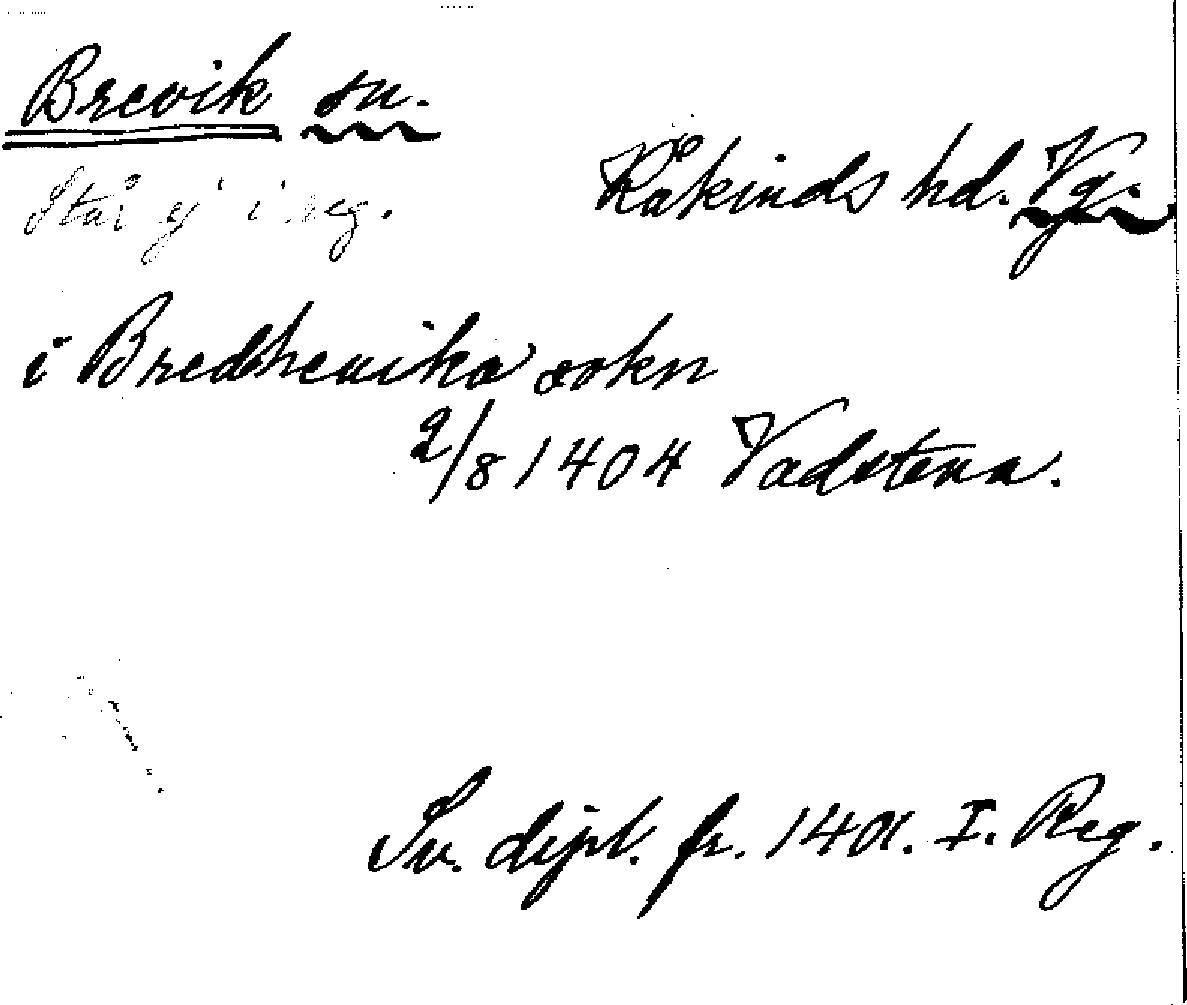 Brevik sn.
Står ej i reg.
Kåkinds hd. Vg.
i Bredhevika sokn
2/8 1404 Vadstena.
Sv. dipl. fr. 1401. I. Reg.